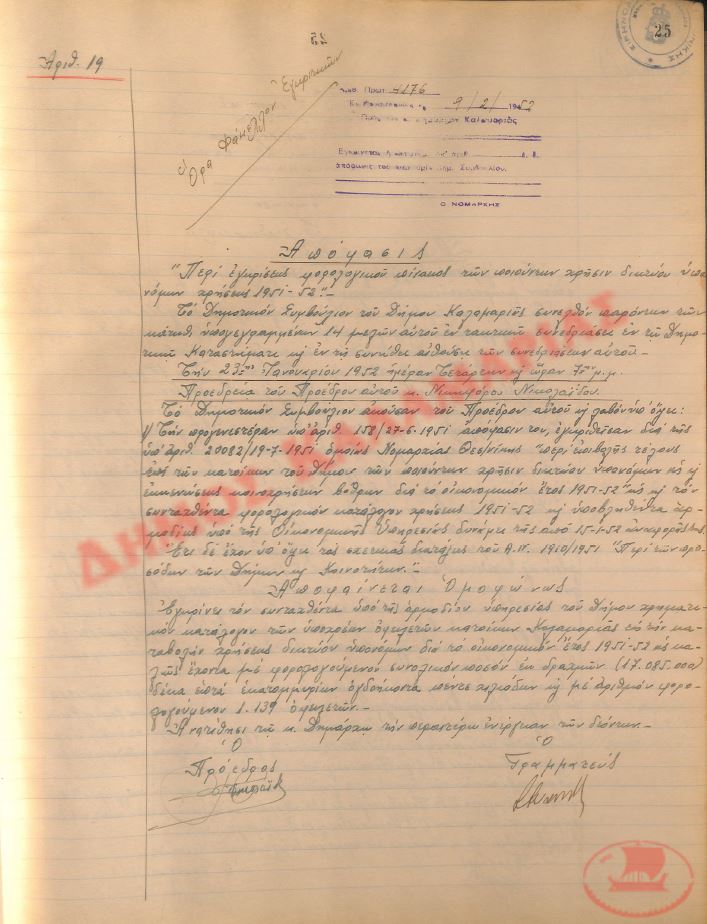 25
25
Ἀριθ. 19
Ὅρα φάκελλον Ἐγκριτικῶν
Ἀριθ. Πρωτ. 4176
Ἐν Θεσσαλονίκῃ τῇ 9/2/1952
Καλαμαριᾶς
Ὁ ΝΟΜΑΡΧΗΣ
Ἀπόφασις
"Περὶ ἐγκρίσεως φορολογικοῦ πίνακος τῶν ποιούντων χρῆσιν δικτύου ὑπο
νόμων χρήσεως 1951-52".-
Τὸ Δημοτικὸν Συμβούλιον τοῦ Δήμου Καλαμαριᾶς συνελθὸν παρόντων τῶν
κάτωθι ὑπογεγραμμένων 14 μελῶν αὐτοῦ ἐν τακτικῇ συνεδριάσει ἐν τῷ Δημο
τικῷ Καταστήματι κ ἐν τῇ συνήθει αἰθούσῃ τῶν συνεδριάσεων αὐτοῦ.-
Τὴν 23ην Ἰανουαρίου 1952 ἡμέραν Τετάρτην κ ὥραν 7ην μ.μ.
Προεδρείᾳ τοῦ Προέδρου αὐτοῦ κ. Νικηφόρου Νικολαΐδου.
Τὸ Δημοτικὸν Συμβούλιον ἀκοῦσαν τοῦ Προέδρου αὐτοῦ κ λαβὸν ὑπ' ὄψει:
Τὴν προγενεστέραν ὑπ' ἀριθ. 158/27-6-1951 ἀπόφασίν του, ἐγκριθεῖσαν διὰ τῆς
ὑπ' ἀριθ. 20082/19-7-1951 ὁμοίας Νομαρχίας Θεσ/νίκης "περὶ ἐπιβολῆς τέλους
εἰς τῶν κατοίκων τοῦ Δήμου τῶν ποιούντων χρῆσιν δικτύου ὑπονόμων ὡς κ
ἐκκενώσεως κοινοχρήστων βόθρων διὰ τὸ οἰκονομικὸν ἔτος 1951-52" ὡς κ τὸν
συνταχθέντα φορολογικὸν κατάλογον χρήσεως 1951-52 κ ὑποβληθέντα ἁρ
μοδίως ὑπὸ τῆς Οἰκονομικῆς Ὑπηρεσίας δυνάμει τῆς ἀπὸ 15-1-52 ἀναφορᾶς της.
Ἔτι δὲ ἔχον ὑπ' ὄψει τὰς σχετικὰς διατάξεις τοῦ Α.Ν. 1950/1951 "Περὶ τῶν προ
σόδων τῶν Δήμων κ Κοινοτήτων."-
Ἀποφαίνεται Ὁμοφώνως
Ἐγκρίνει τὸν συνταχθέντα ὑπὸ τῆς ἁρμοδίου ὑπηρεσίας τοῦ Δήμου χρηματι
κὸν κατάλογον τῶν ὑποχρέων ὀφειλετῶν κατοίκων Καλαμαριᾶς εἰς τὴν κα
ταβολὴν χρήσεως δικτύου ὑπονόμων διὰ τὸ οἰκονομικὸν ἔτος 1951-52 ὡς κα
λῶς ἔχοντα μὲ φορολογούμενον συνολικὸν ποσὸν ἐκ δραχμῶν (17.085.000)
δέκα ἑπτὰ ἑκατομμυρίων ὀγδοήκοντα πέντε χιλιάδων κ μὲ ἀριθμὸν φορο
λογουμένων 1.139 ὀφειλετῶν.-
Ἀνατίθησι τῷ κ. Δημάρχῳ τὴν περαιτέρω ἐνέργειαν τῶν δεόντων.-
Ὁ
Πρόεδρος
Ὁ
Γραμματεὺς